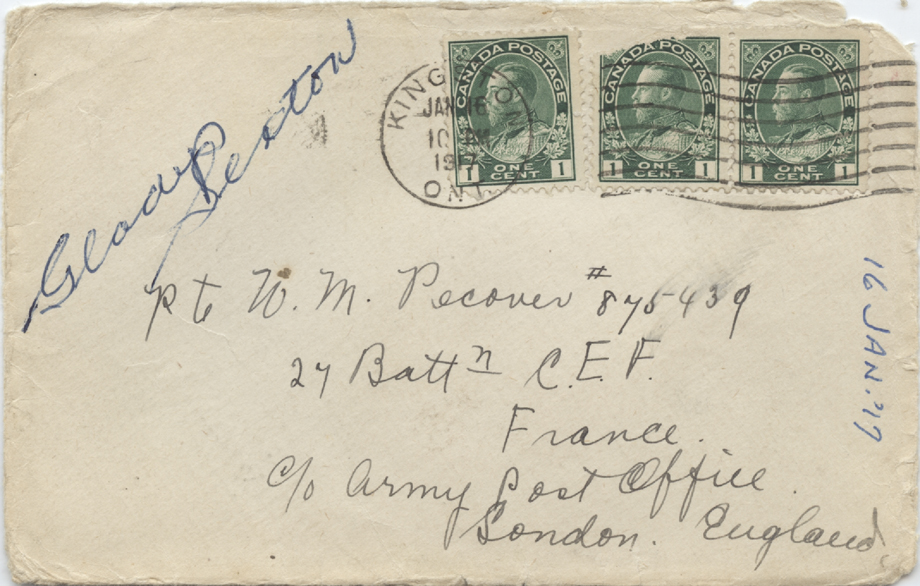 Gladys Sexton
CANADA POSTAGE
ONE CENT
1 1
CANADA POSTAGE
ONE CENT
1 1
CANADA POSTAGE
ONE CENT
1 1
KINGSTON
JAN 16
10 AM
1917
ONT.
Pte W. M. Pecover #875439
27 Battn C.E.F.
France.
c/o Army Post Office.
London. England
16 JAN. '17